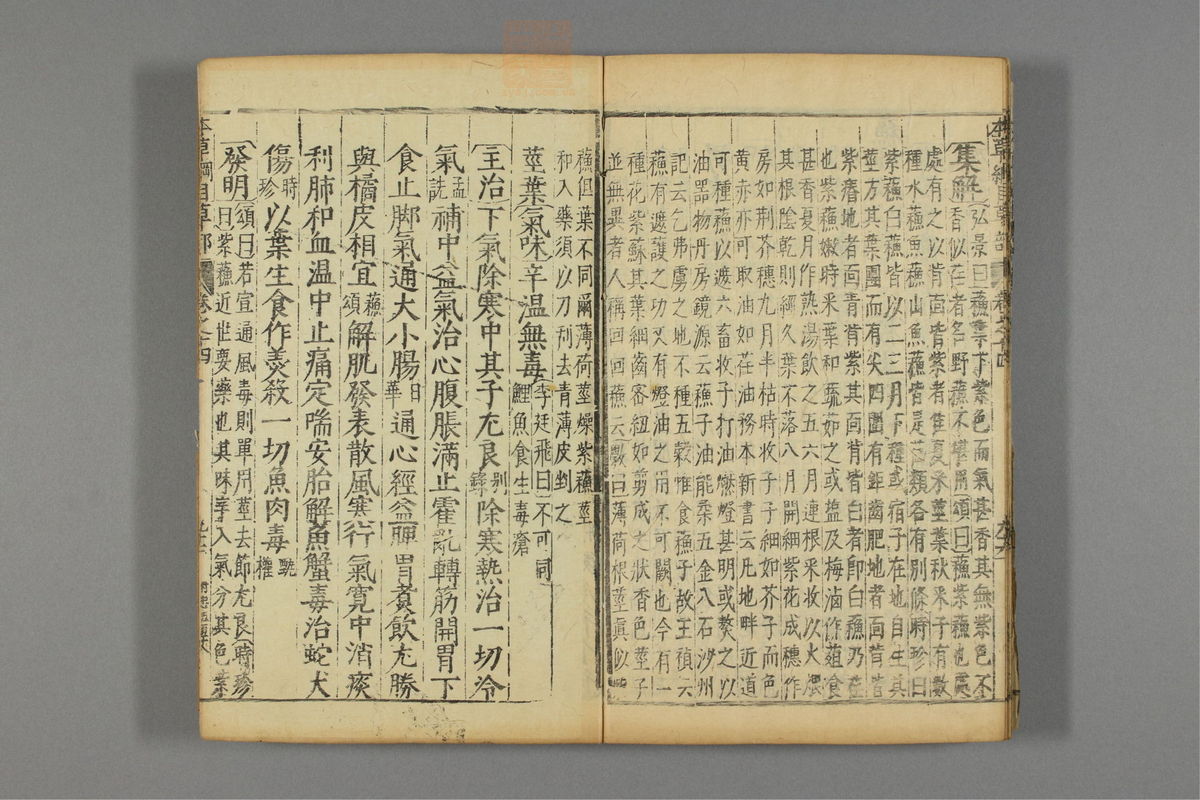 本草綱目草部 卷之十四
集解弘景曰蘇葉下紫色而氣甚香其無紫色不
香似荏者名野蘇不堪用頌曰蘇紫蘇也處
處有之以背面皆紫者佳夏采莖葉秋采子有數
種水蘇魚蘇山魚蘇皆是荏類各有別條時珍曰
紫蘇白蘇皆以二三月下種或宿子在地自生其
莖方其葉團而有尖四圍有鋸齒肥地者面背皆
紫瘠地者面青背紫其面背皆白者即白蘇乃荏
也紫蘇嫩時采葉和蔬茹之或鹽及梅滷作葅食
甚香夏月作熟湯飲之五六月連根采收以火煨
其根陰乾則經久葉不落八月開細紫花成穗作
房如荊芥穗九月半枯時收子子細如芥子而色
黃赤亦可取油如荏油務本新書云凡地畔近道
可種蘇以遮六畜收子打油燃燈甚明或熬之以
油器物丹房鏡源云蘇子油能柔五金八石沙州
記云乞弗虜之地不種五穀惟食蘇子故王禎云
蘇有遮護之功又有燈油之用不可闕也今有一
種花紫蘇其葉細齒密紐如剪成之狀香色莖子
並無異者人稱回回蘇云斅曰薄荷根莖眞似紫
蘇但葉不同爾薄荷莖燥紫蘇莖
和入藥須以刀刮去青薄皮剉之
莖葉氣味辛温無毒李廷飛曰不可同
鯉魚食生毒瘡
主治下氣除寒中其子尤良别錄除寒熱治一切冷
氣孟詵補中益氣治心腹脹滿止霍亂轉筋開胃下
食止脚氣通大小腸日華通心經益脾胃煑飲尤勝
與橘皮相宜蘇頌解肌發表散風寒行氣寛中消痰
利肺和血温中止痛定喘安胎解魚蟹毒治蛇犬
傷時珍以葉生食作羹殺一切魚肉毒甄權
發明頌曰若宣通風毒則單用莖去節尤良時珍
曰紫蘇近世要藥也其味辛入氣分其色紫
本草綱目草部 卷之十四